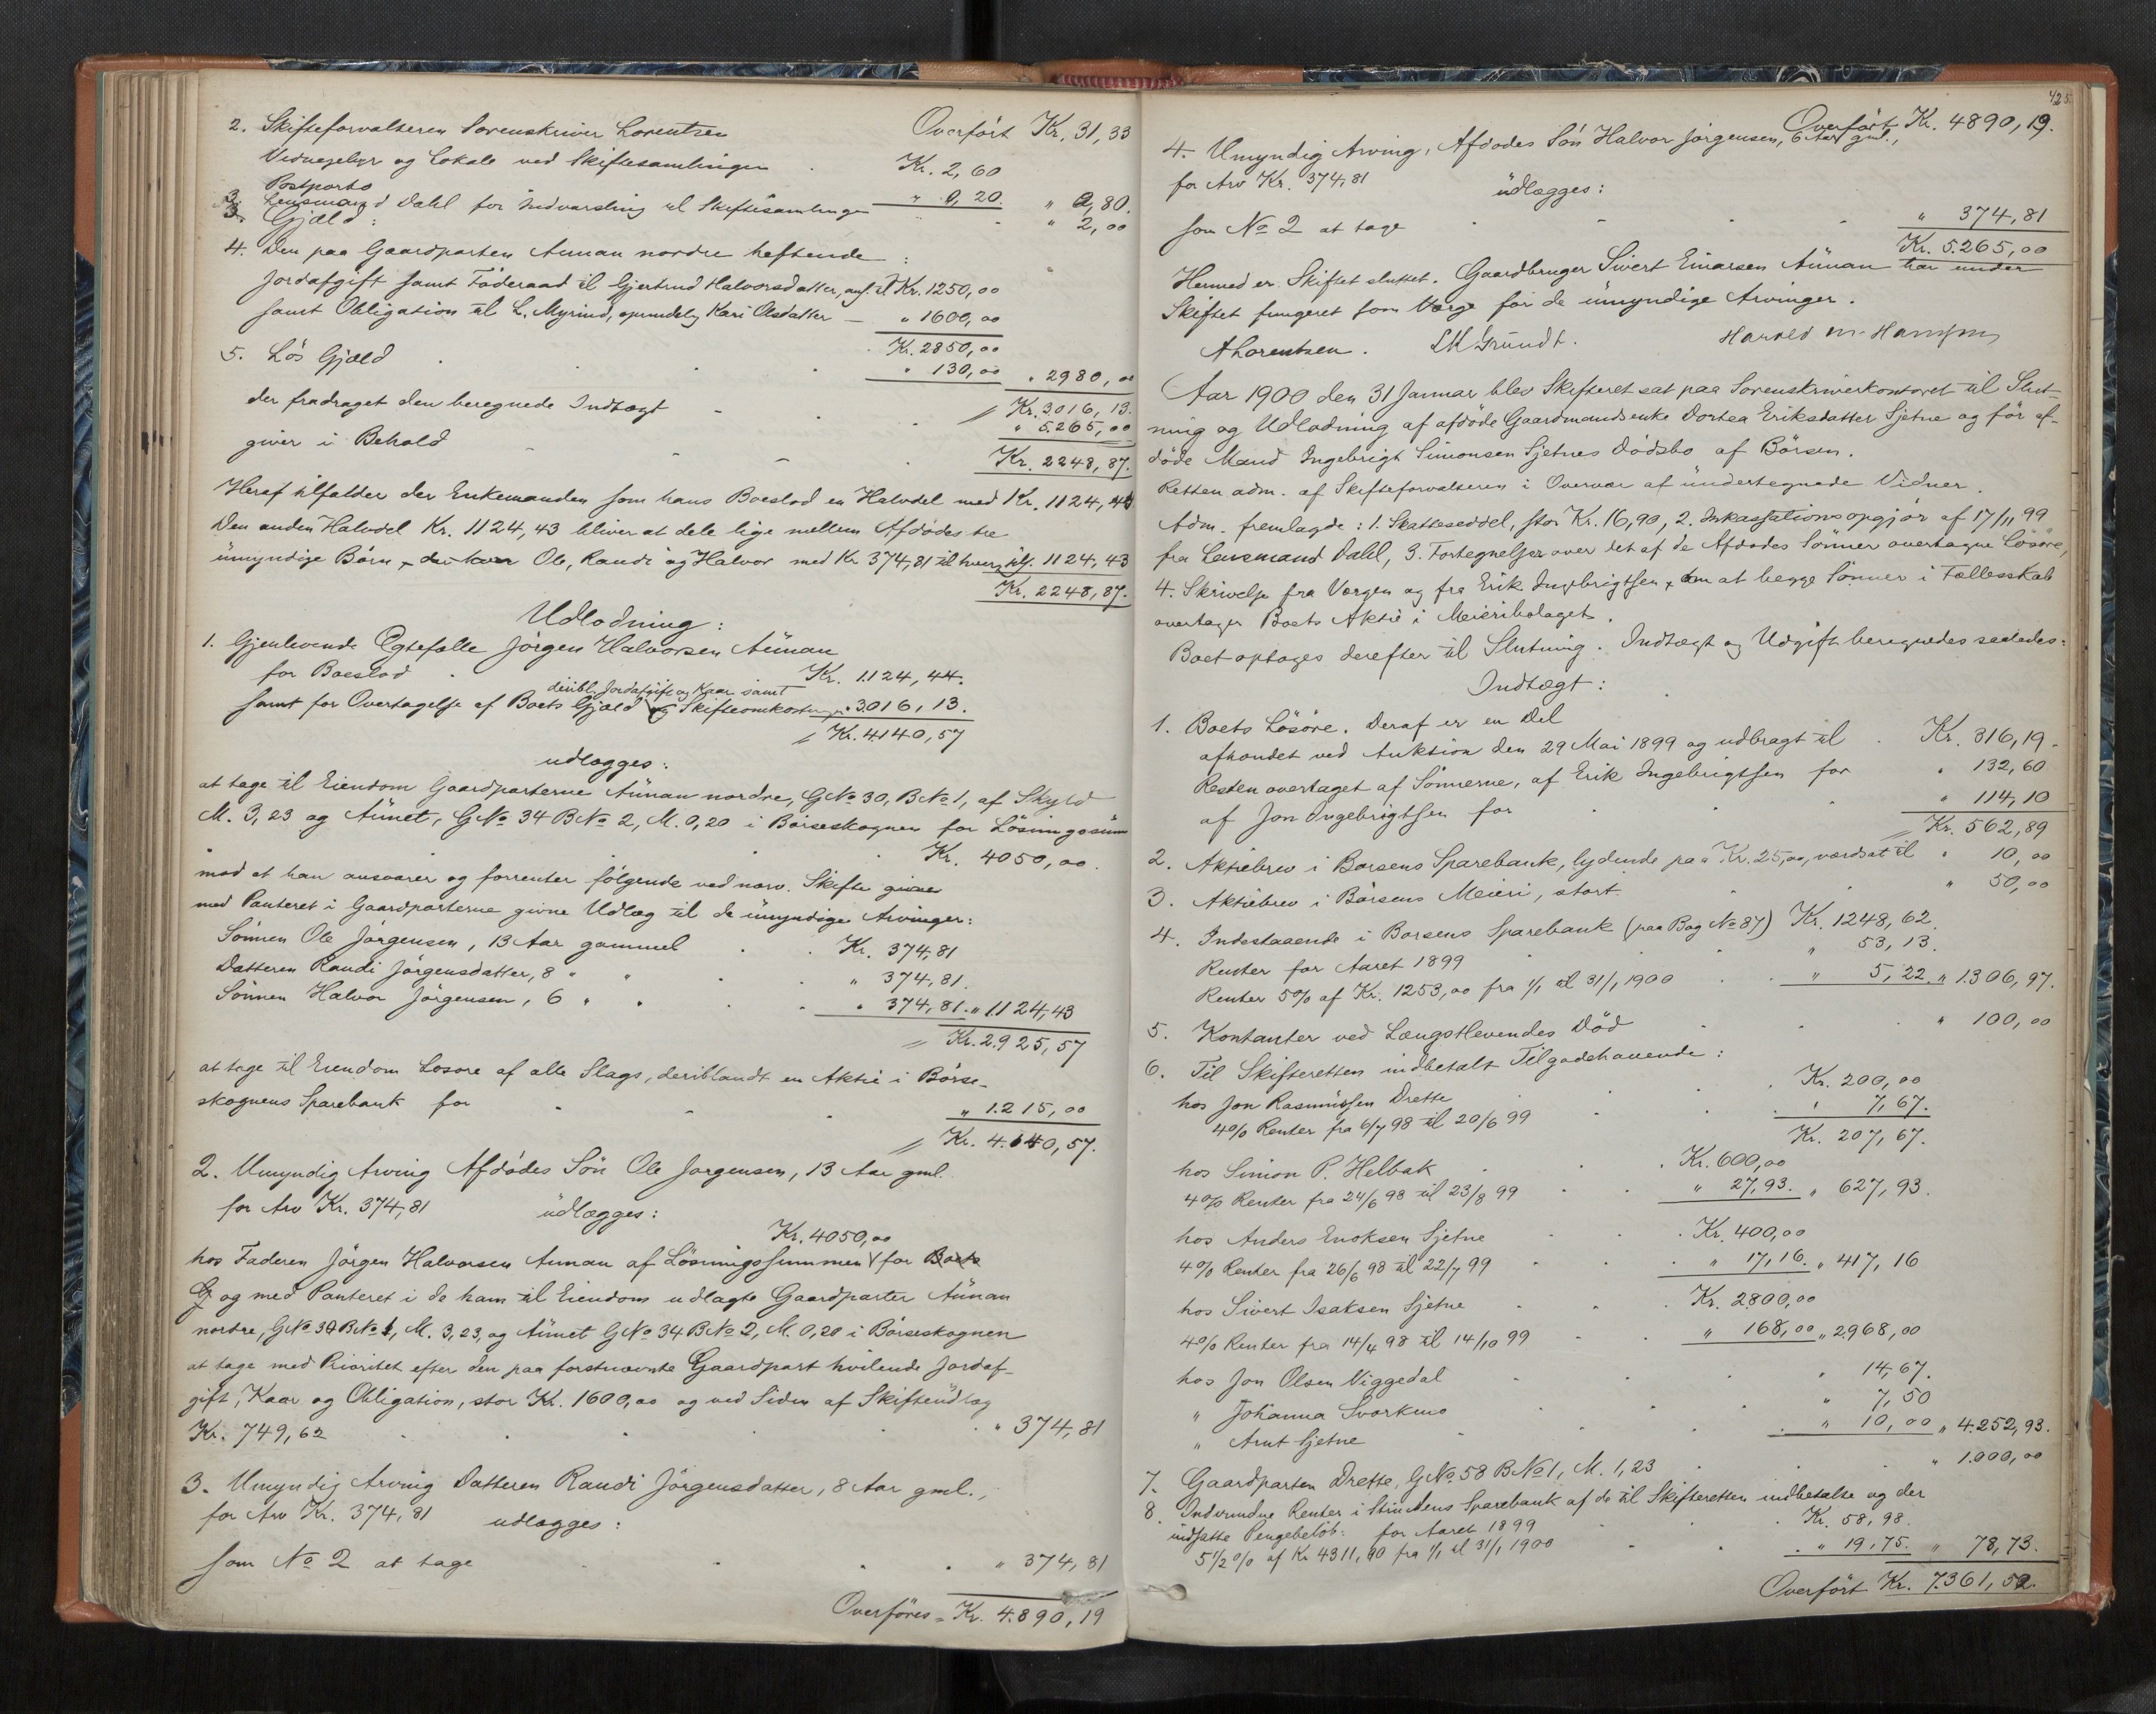 Overført Kr. 31,33
2. Skifteforvalteren Sorenskriver Lorentzen
Vidnegebyr og Lokale ved Skiftesamlingen . Kr. 2,60
Postporto " 0,20. " 2,80.
3. Lensmand Dahl for Indvarsling til Skiftesamlingen " 2,00
3. Gjæld:
4. Den paa Gaardparten Aunan nordre heftende :
Jordafgift samt Föderaad til Gjertrud Halvorsdatter, ans. til Kr. 1250,00
samt Obligation til L. Myrind, oprindelig Kari Olsdatter — " 1600,00
Kr. 2850,00
5. Lös Gjæld . " 130,00 " 2980,00
Kr. 3016,13.
der fradraget den beregnede Indtægt - " 5.265,00
giver i Behold Kr. 2248,87.
Heraf tilfalder der Enkemanden som hans Boeslod en Halvdel med Kr. 1124,44
Den anden Halvdel Kr. 1124,43 bliver at dele lige mellem Afdødes tre
ümyndige Børn, Ole, Randi og Halvor med Kr 374,81 til hver, tils. 1124,43
Kr. 2248,87.
Udlodning:
1. Gjenlevende Ægtefælle Jörgen Halvorsen Aünan
for Boeslod . Kr. 1124,44.
deribl. Jordafgift og Kaar samt
samt for Overtagelse af Boets Gjæld og Skifteomkostninger " 3016,13.
Kr. 4140,57
udlægges:
at tage til Eiendom Gaardparterne Aünan nordre, GNo 30, BNo 1, af Skyld
M. 3,23 og Aünet, GNo 34 BNo 2, M. 0,20 i Børseskognen for Løsningssum
Kr. 4050,00.
mod at han ansvarer og forrenter følgende ved nærv. Skifte givne
med Panteret i Gaardparterne givne Udlæg til de ümyndige Arvinger:
Sønnen Ole Jørgensen, 13 Aar gammel . . Kr. 374,81
Datteren Randi Jörgensdatter, 8 " " . . " 374,81.
Sönnen Halvor Jörgensen, 6 " " . . " 374,81. " 1124,43
Kr. 2.925,57
at tage til Eiendom Løsøre af alle Slags, deriblandt en Aktie i Börse-
skognens Sparebank for - - - " 1.215,00
Kr. 4.140,57.
2. Umyndig Arving Afdødes Søn Ole Jørgensen, 13 Aar gml.
for Arv Kr. 374,81 üdlægges:
Kr. 4050,00
hos Faderen Jörgen Halvorsen Aunan af Løsningssummen for Boets
G og med Panteret i de ham til Eiendom udlagte Gaardparter Aünan
nordre, GNo 30 BNo 1, M. 3,23, og Aünet GNo 34 BNo 2, M. 0,20 i Børseskognen
at tage med Prioritet efter den paa førstnævnte Gaardpart hvilende Jordaf-
gift, Kaar og Obligation, stor Kr. 1600,00 og ved Siden af Skifteüdlæg
Kr. 749,62 . . . . " 374,81
3. Umyndig Arving Datteren Randi Jörgensdatter, 8 Aar gml.,
for Arv Kr. 374,81 udlægges:
som No 2 at tage . . . " 374,81
Overföres = Kr. 4.890,19
425.
Overført Kr. 4890,19.
4. Umyndig Arving, Afdødes Søn Halvor Jørgensen, 6 Aar gml.,
for Arv Kr. 374,81 üdlægges:
som No 2 at tage . . . . " 374,81
Kr. 5.265,00
Hermed er Skiftet sluttet. Gaardbruger Sivert Einarsen Aünan har under
Skiftet fungeret som Værge for de ümyndige Arvinger.
A Lorentzen. LM Gründt.
Aar 1900 den 31 Januar blev Skifteret sat paa Sorenskriverkontoret til Slut-
ning og Udlodning af afdöde Gaardmandsenke Dortea Eriksdatter Sjetne og før af-
döde Mand Ingebrigt Simonsen Sjetnes Dödsbo af Börsen.
Retten adm. af Skifteforvalteren i Overvær af ündertegnede Vidner.
Adm. fremlagde: 1. Skatteseddel, stor Kr. 16,90, 2. Inkassationsopgjør af 17/11 99
fra Lensmand Dahl, 3. Fortegnelser over det af de Afdødes Sønner overtagne Løsøre,
4. Skrivelse fra Værgen og fra Erik Ingebrigtsen, om at begge Sønner i Fællesskab
overtager Boets Aktie i Meieribolaget.
Boet optoges derefter til Slutning. Indtægt og Udgift beregnedes saaledes:
Indtægt:
1. Boets Løsøre. Deraf er en Del
afhændet ved Auktion den 29 Mai 1899 og udbragt til . Kr. 316,19.
Resten overtaget af Sønnerne, af Erik Ingebrigtsen for " 132,60
af Jon Ingebrigtsen for . . . " 114,10
Kr. 562,89
2. Aktiebrev i Børsens Sparebank, lydende paa Kr. 25,00, værdsat til " 10,00
3. Aktiebrev i Börsens Meieri, stort " 50,00
4. Indestaaende i Børsens Sparebank (paa Bog No 87) Kr. 1248,62.
Renter for Aaret 1899 " 53,13.
Renter 5% af Kr. 1253,00 fra 1/1 til 31/1 1900 " 5,22. " 1.306,97.
5. Kontanter ved Længstlevendes Död . . " 100,00
6. Til Skifteretten indbetalt Tilgodehavende:
hos Jon Rasmussen Drette . . . Kr. 200,00
4% Renter fra 6/7 98 til 20/6 99 . . " 7,67.
Kr. 207,67.
hos Simon P. Helbak . . Kr. 600,00
4% Renter fra 24/6 98 til 23/8 99 . . " 27,93. " 627,93.
hos Anders Enoksen Sjetne . . Kr. 400,00
4% Renter fra 26/6 98 til 22/7 99 . . " 17,16. " 417,16
hos Sivert Isaksen Sjetne . . Kr. 2800,00
4% Renter fra 14/4 98 til 14/10 99 . . " 168,00 " 2968,00
hos Jon Olsen Viggedal . . . " 14,67.
" Johanna Svorkmo . . . " 7,50
" Arnt Sjetne . . . " 10,00 " 4.252,93.
7. Gaardparten Drette, GNo 58 BNo 1, M. 1,23 . . " 1.000,00
8. Indvundne Renter i Strindens Sparebank af de til Skifteretten indbetalte og der
indsatte Pengebeløb: for Aaret 1899 . . Kr. 58,98.
5 1/2 % af Kr 4311,90 fra 1/1 til 31/1 1900 . . " 19,75. " 78,73.
Overført Kr. 7.361,52.